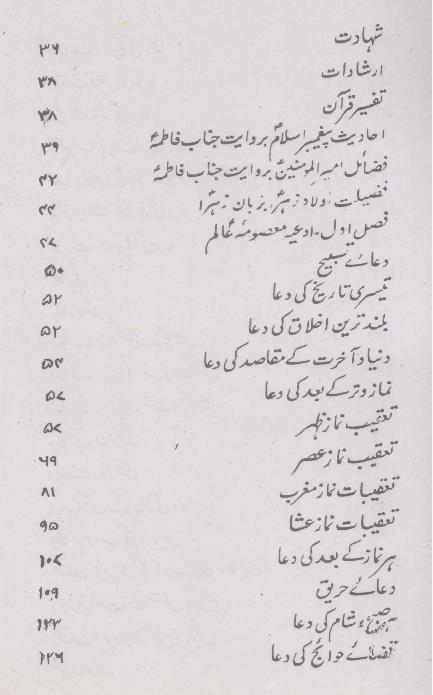 شہادت ۳۶
ارشادات ۳۸
تفسیر قرآن ۳۸
احادیث پیغمبر اسلامؐ بروایت جناب فاطمہؑ ۳۹
فضائل امیر المومنینؑ بروایت جناب فاطمہؑ ۴۲
فضیلت اولاد زہراؑ بزبان زہراؑ ۴۴
فصل اول۔ادعیہ معصومہ عالم ۴۷
دعائے تسبیح ۵۰
تیسری تاریخ کی دعا ۵۲
بلند ترین اخلاق کی دعا ۵۲
دنیا و آخرت کے مقاصد کی دعا ۵۴
نماز وتر کے بعد کی دعا ۵۷
تعقیب نماز ظہر ۵۷
تعقیب نماز عصر ۶۹
تعقیبات نماز مغرب ۸۱
تعقیبات نماز عشا ۹۵
ہر نماز کے بعد کی دعا ۱۰۷
دعائے حریق ۱۰۹
صبح و شام کی دعا ۱۲۳
قضائے حوائج کی دعا ۱۲۶